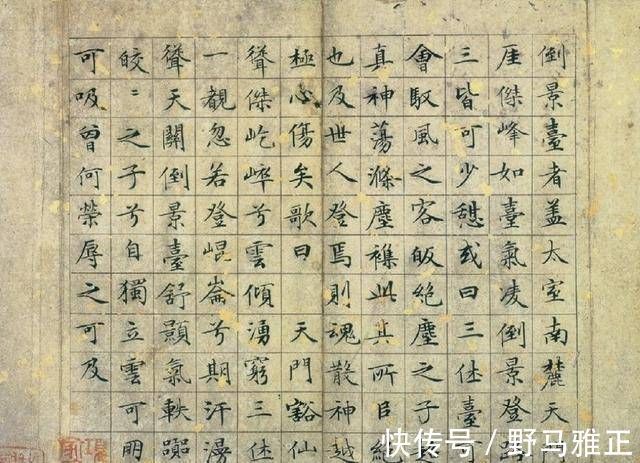 倒景臺者蓋太室南麓天
厓傑峰如臺氣凌倒景登路
三皆可少憩或曰三休臺可
會馭風之客皈絕塵之子
真神蕩滌塵襟此其所臣絕
也及世人登焉則魂散神越
極心傷矣歌曰 天門豁仙
聳傑屹崒兮雲傾湧窮三休
一覩忽若登崐崙兮期汗漫
聳天關倒景臺舒顥氣軼
皎〻之子兮自獨立雲可朋
可吸曾何榮辱之可及
快传号／野马雅正